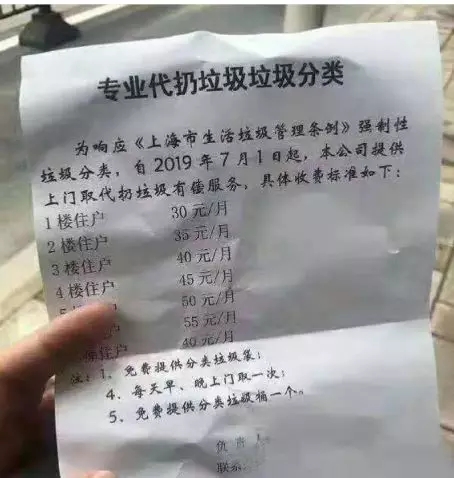 专业代扔垃圾垃圾分类
为响应《上海市生活垃圾管理条例》强制性
垃圾分类，自2019年7月1日起，本公司提供
上门取代扔垃圾有偿服务，具体收费标准如下：
1楼住户 30元/月
2楼住户 35元/月
3楼住户 40元/月
4楼住户 45元/月
住户 50元/月
住户 55元/月
住户 40元/月
注：1、免费提供分类垃圾袋；
4、每天早、晚上门取一次；
5、免费提供分类垃圾桶一个。
负责人
联系